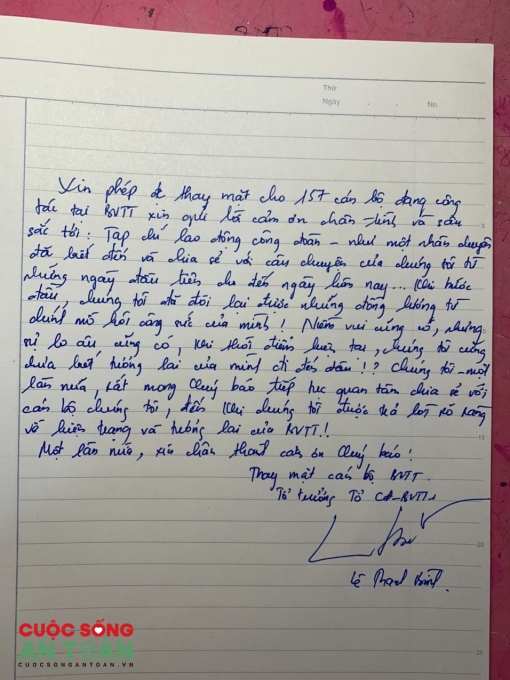 Thứ
Ngày No.
Xin phép đc thay mặt cho 157 cán bộ đang công
tác tại BVTT xin gửi lời cảm ơn chân tình và sâu
sắc tới: Tạp chí lao động công đoàn - như một nhân duyên
đã biết đến và chia sẻ với câu chuyện của chúng tôi từ
những ngày đầu tiên cho đến ngày hôm nay... Khi bước
đầu, chúng tôi đã đòi lại được những đồng lương từ
chính mồ hôi công sức của mình! Niềm vui cũng có, nhưng
sự lo âu cũng có, khi thời điểm hiện tại, chúng tôi cũng
chưa biết tương lai của mình đi đến đâu!? Chúng tôi một
lần nữa, rất mong Quý báo tiếp tục quan tâm chia sẻ với
cán bộ chúng tôi, đến khi chúng tôi được trả lời rõ ràng
về hiện trạng và tương lai của BVTT!
Một lần nữa, xin chân thành cảm ơn Quý báo!
Thay mặt cán bộ BVTT
Tổ trưởng Tổ CĐ-BVTT
Lê
5
15
20
25
CUỘC SỐNG
AN TOÀN
CUOCSONGANTOAN.VN